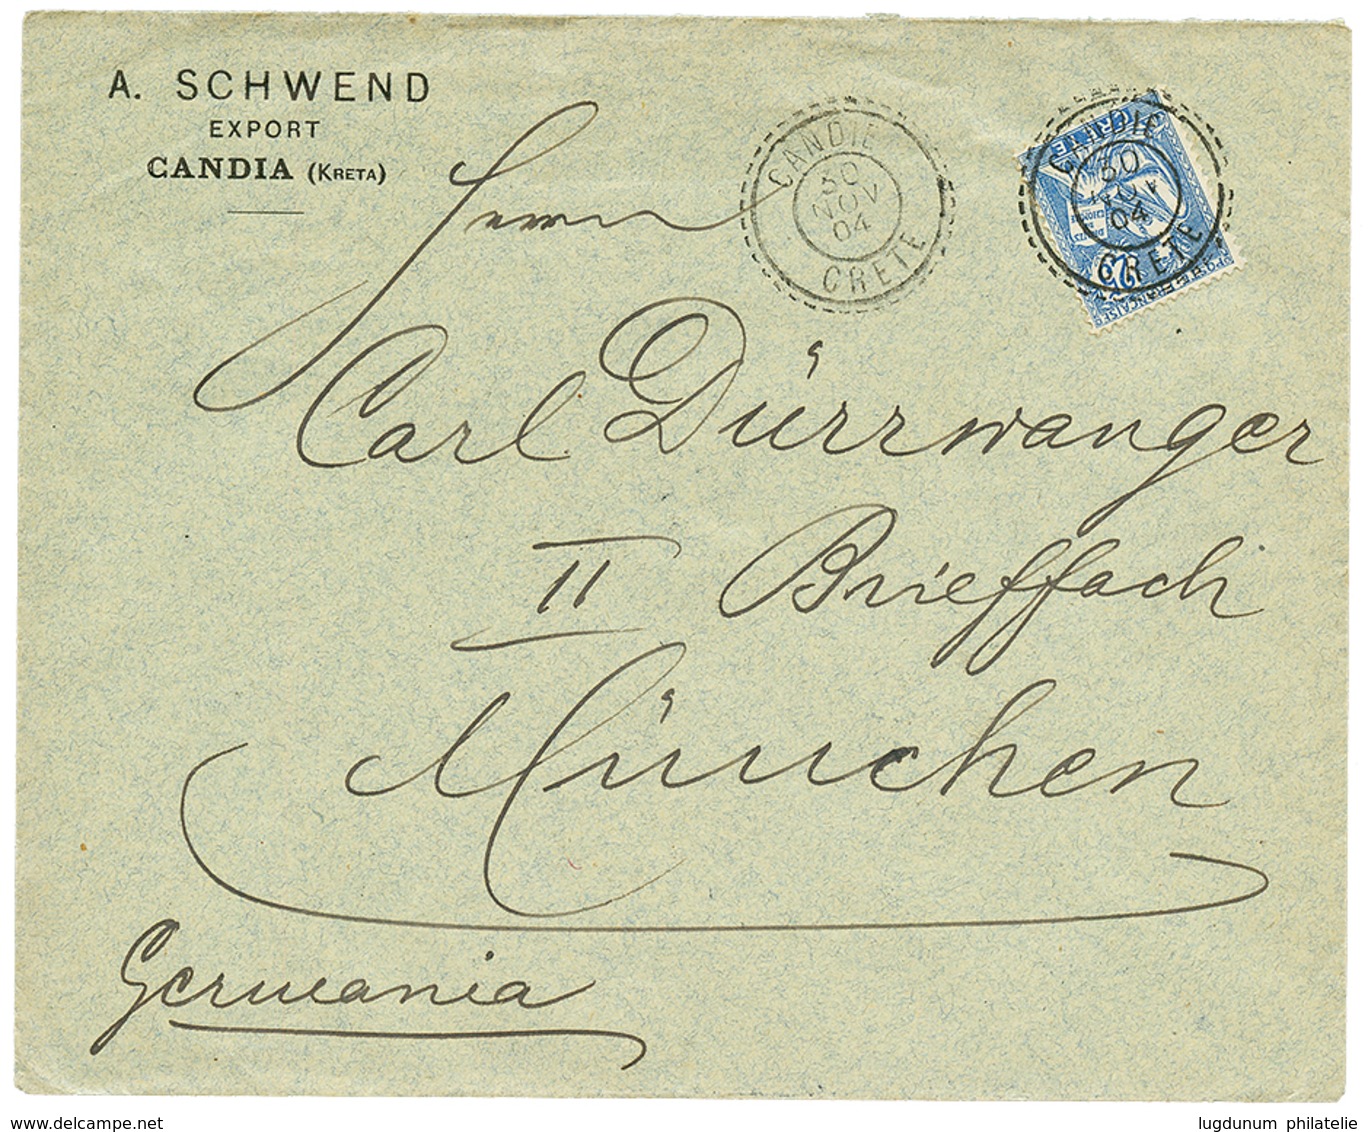 A. SCHWEND
EXPORT
CANDIA (KRETA)
CANDIE
30
NOV
04
CRETE
CANDIE
30
NOV
04
CRETE
CRÈTE
25
Herrn
Carl Dürrwanger
II Brieffach
München
Germania
www.delcampe.net
lugdunum philatelie